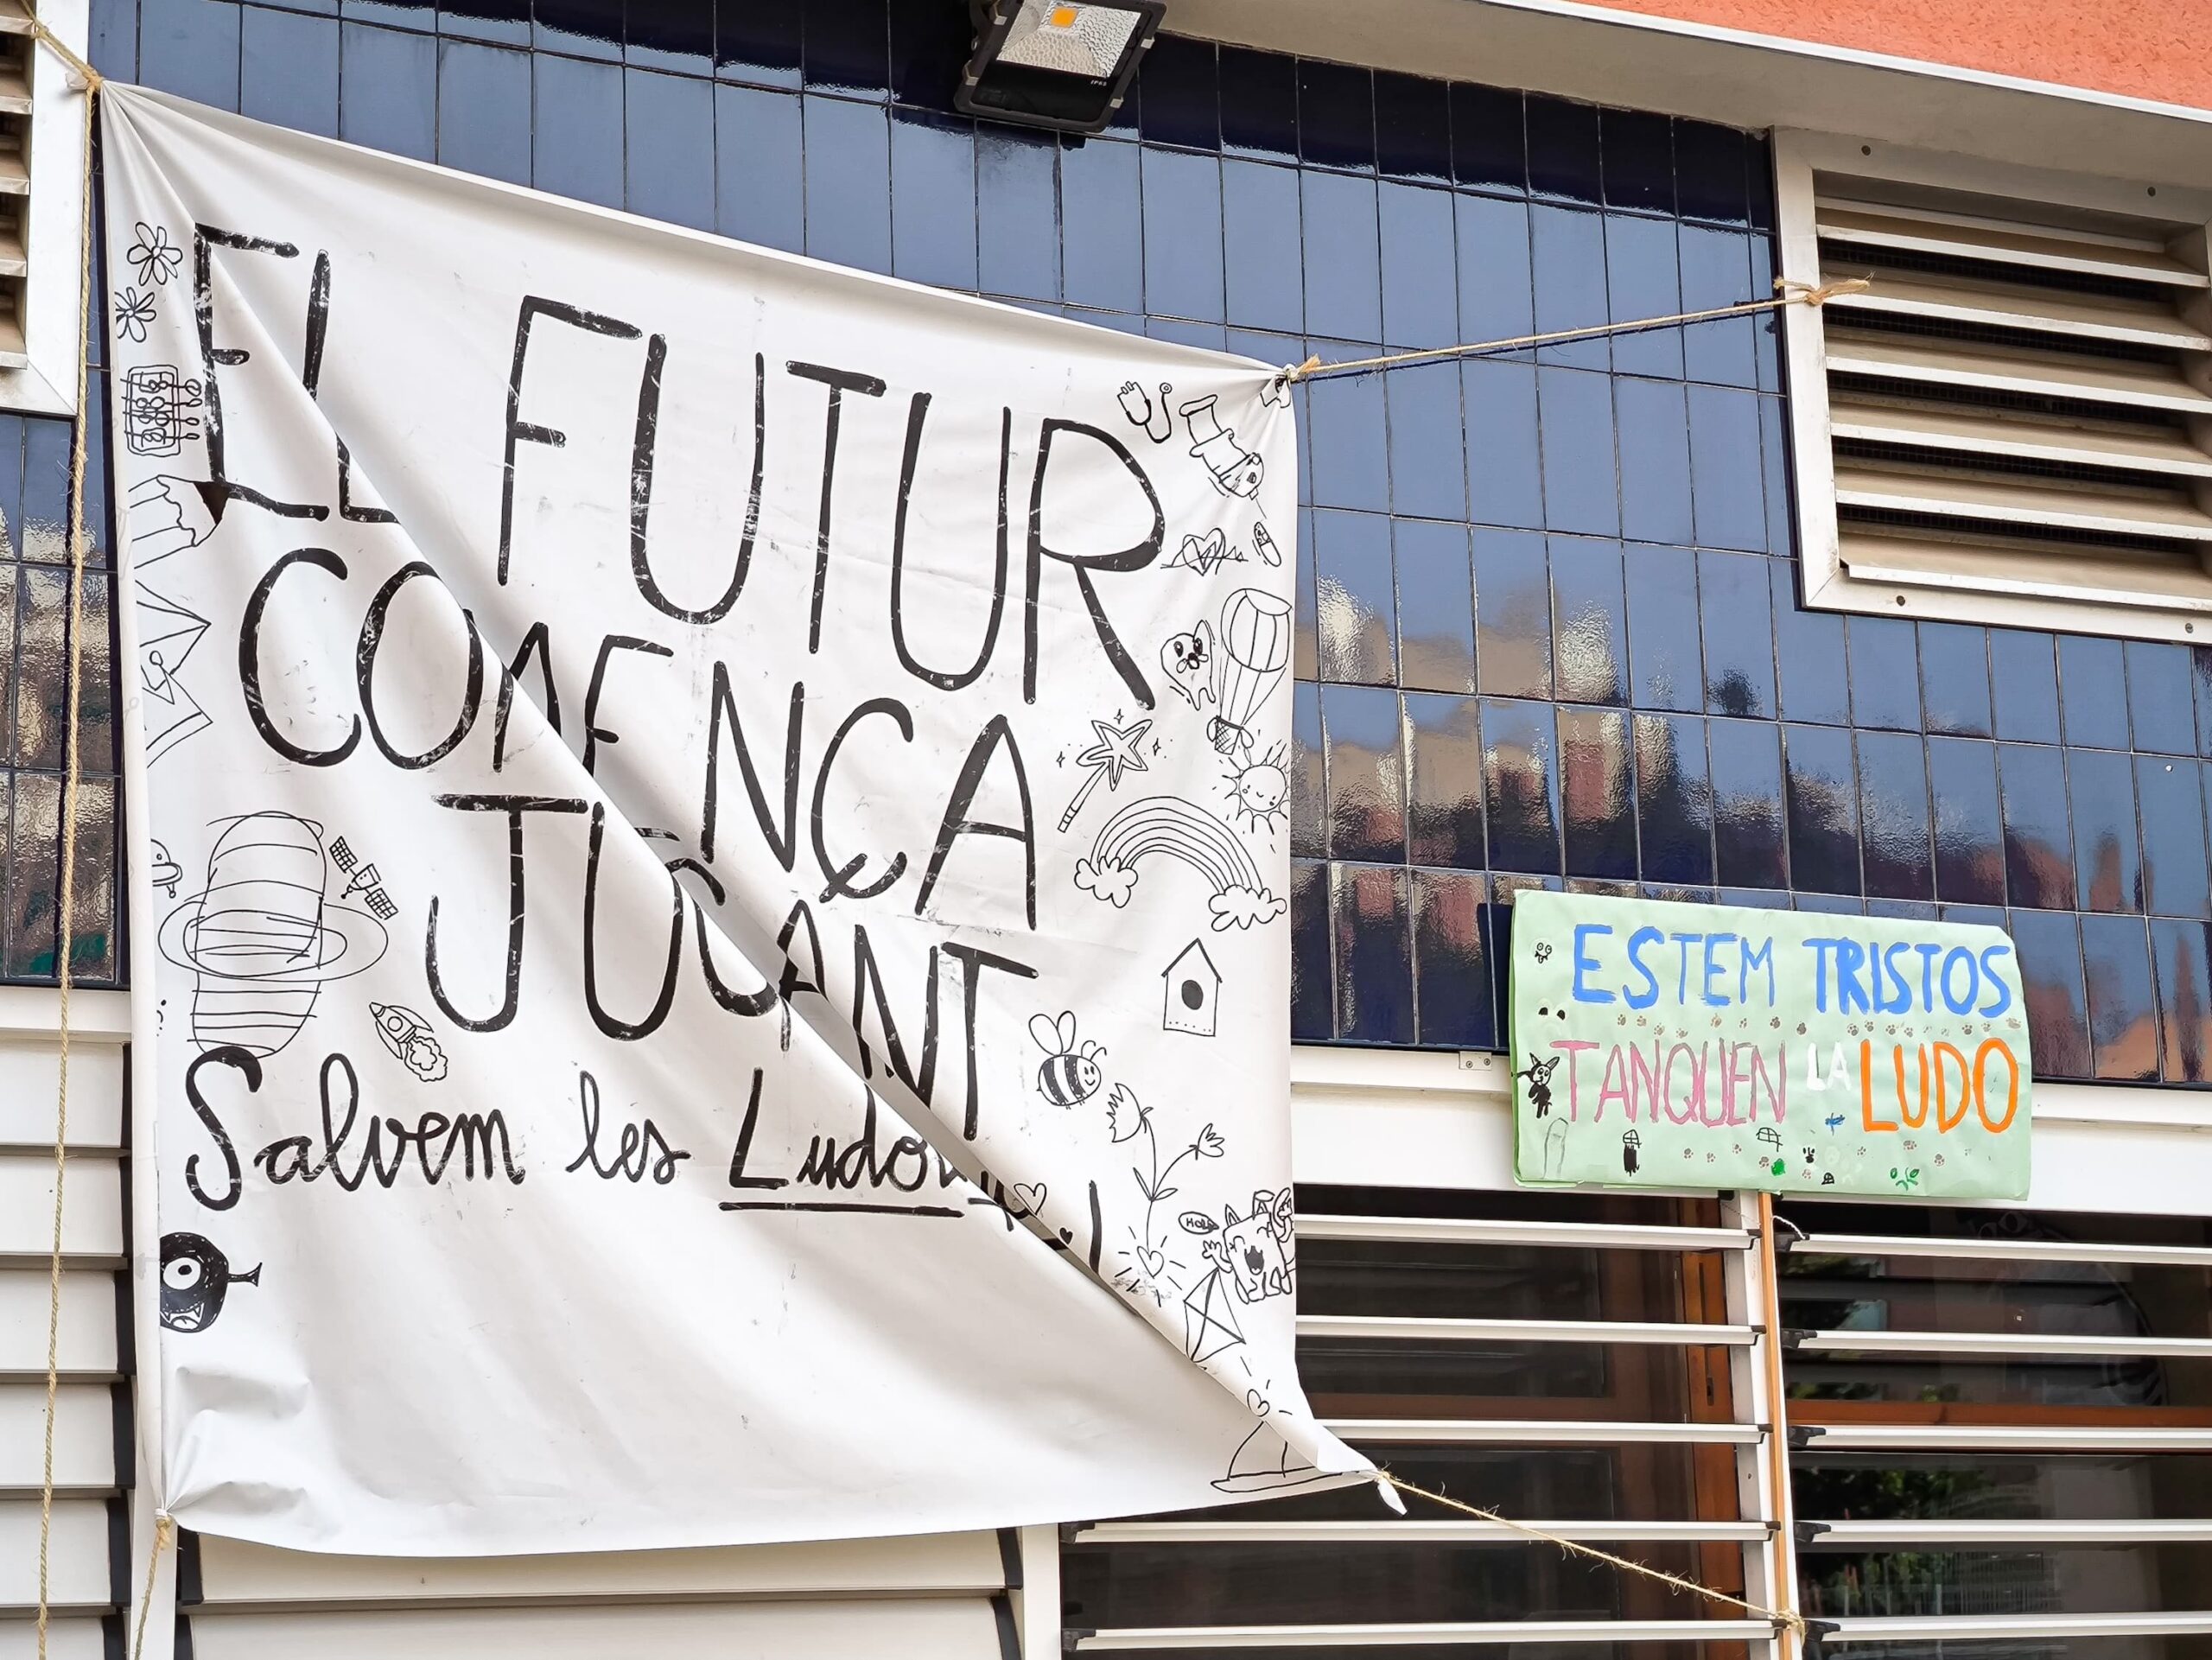 EL FUTUR
COMENÇA
JUGANT
Salvem les
HOLA
ESTEM TRISTOS
TANQUEN LA LUDO